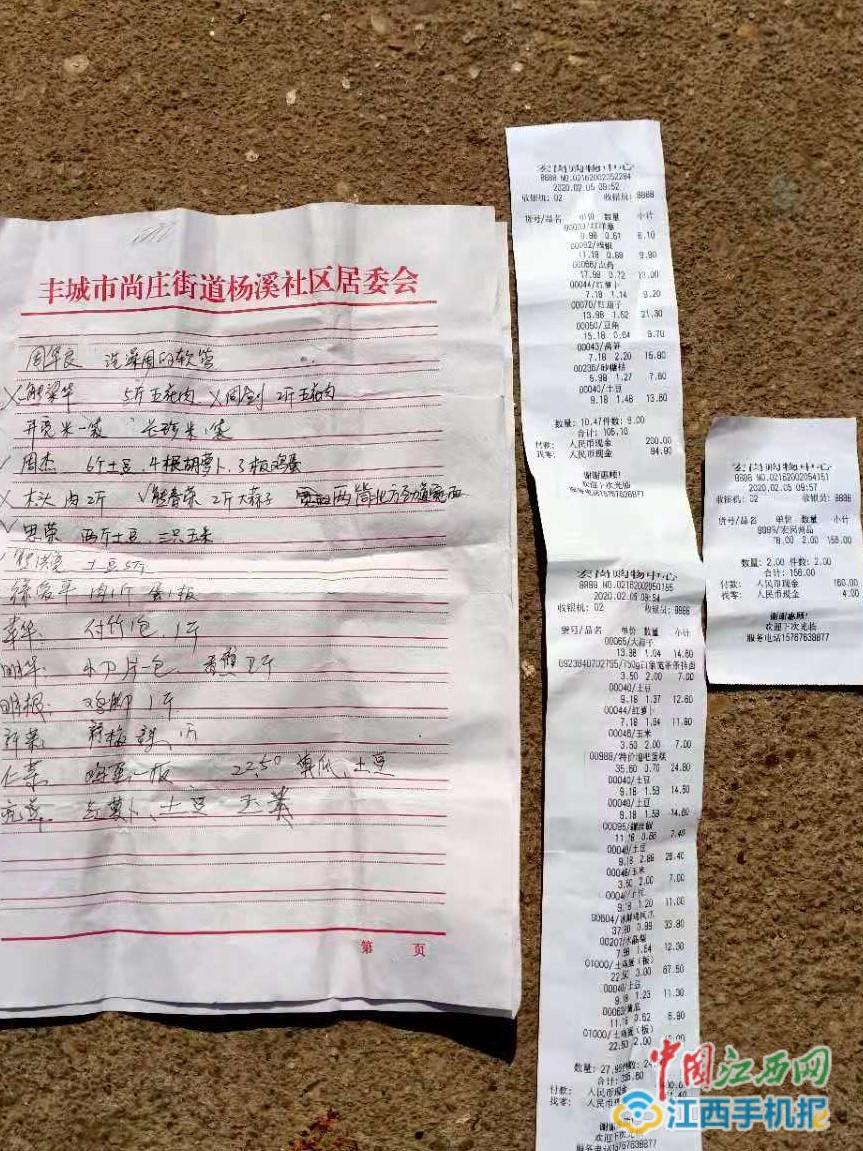 丰城市尚庄街道杨溪社区居委会
周华良 洗菜用的软管
5斤五花肉 X周剑 2斤五花肉
米一袋 长珍米1袋
周杰 6斤土豆、4根胡萝卜、3板鸡蛋
X 木头 肉2斤 √熊春荣 2斤大蒜子
思荣 两斤土豆、三只玉米
土豆5斤
徐爱平 肉1斤 蛋1板
华 付竹1包、1斤
明华 一包
明根 鸡脚1斤
一板 22.50 黄瓜、土豆
红萝卜、土豆
第 页
宏尚购物中心
8888 NO.02162002052284
2020.02.05 09:52
收银机: 02 收银员: 8888
货号/品名 单价 数量 小计
00039/红洋葱
9.98 0.61 6.10
00092/线椒
11.18 0.89 9.90
00066/山药
17.98 0.72 13.00
00044/红萝卜
7.18 1.14 8.20
00070/红茄子
13.98 1.52 21.30
00050/豆角
15.18 0.64 9.70
00043/莴笋
7.18 2.20 15.80
00236/砂糖桔
5.98 1.27 7.60
00040/土豆
9.18 1.48 13.60
数量: 10.47件数: 9.00
合计: 105.10
付款: 人民币现金 200.00
找零: 人民币现金 94.90
谢谢惠顾!
欢迎下次光临
服务电话15767638877
宏尚购物中心
8888 NO.02162002050165
2020.02.05 09:54
收银机: 02 收银员: 8888
货号/品名 单价 数量 小计
00065/大蒜子
13.98 1.04 14.60
6923840702755/150g白象宽条条挂面
3.50 2.00 7.00
00040/土豆
9.18 1.37 12.60
00044/红萝卜
7.18 1.64 11.80
00046/玉米
3.50 2.00 7.00
00988/特价泡吧蛋糕
35.60 0.70 24.80
00040/土豆
9.18 1.59 14.60
00040/土豆
9.18 1.59 14.60
00095/螺丝椒
11.18 0.66 7.40
00040/土豆
9.18 2.88 26.40
00046/玉米
3.50 2.00 7.00
00040/土豆
9.18 1.20 11.00
33.80
12.30
01000/土鸡蛋(板)
22.50 3.00 67.50
00040/土豆
9.18 1.23 11.30
黄瓜
11.18 0.62 6.90
01000/土鸡蛋(板)
22.50 2.00
付款: 人民币现金
找零: 人民币现
谢谢惠顾
欢迎下次光临
服务电话15767638877
宏尚购物中心
8888 NO.02162002054151
2020.02.05 09:57
收银机: 02 收银员: 8888
货号/品名 单价 数量 小计
78.00 2.00 156.00
数量: 2.00 件数: 2.00
合计: 156.00
付款: 人民币现金 160.00
找零: 人民币现金 4.00
谢谢惠顾!
欢迎下次光临
服务电话15767638877
中国江西网
江西手机报